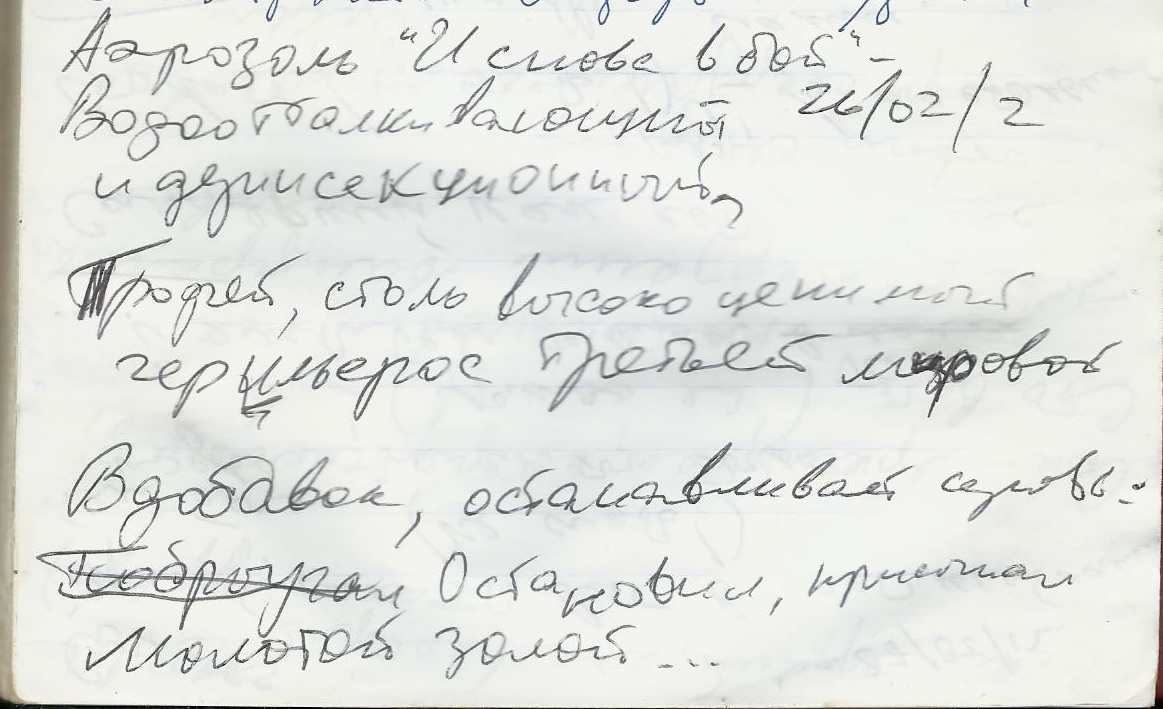 Аэрозоль "И снова в бой" -
Водоотталкивающий 26/02/2
и дезинсекционный,
Трофей, столь высоко ценимый
герильерос Третьей мировой
Вдобавок, останавливает кровь:
Остановил, присыпал
Молотой золой...